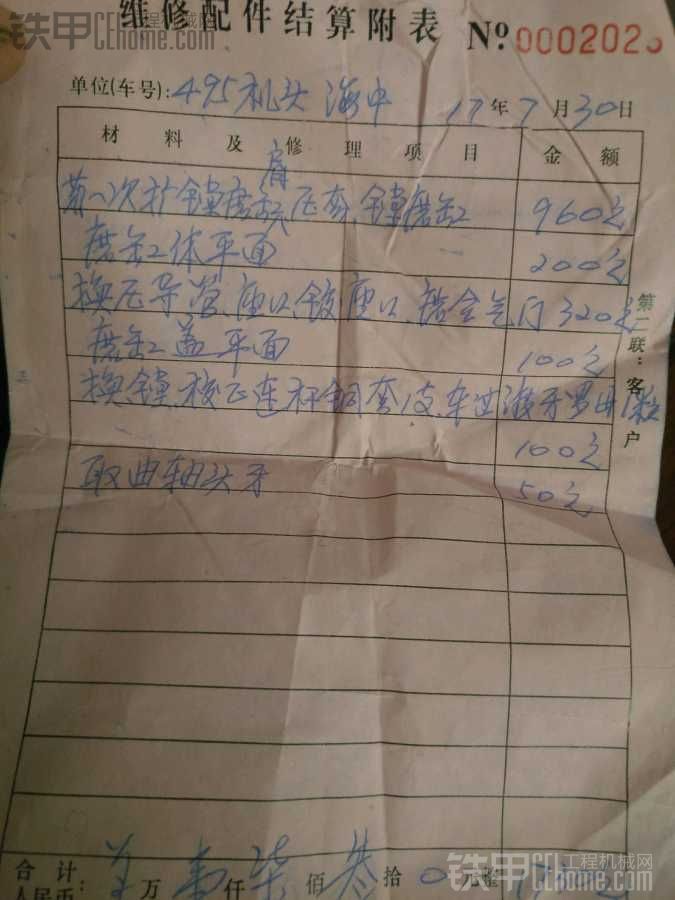 铁甲 工程机械网 cehome.com
维修配件结算附表 № 000202
单位(车号): 495机头 海中 17年7月30日
材料及修理项目 金额
第一次扩镗磨 压套、镗磨缸 960元
磨缸体平面 200元
换压导管、座口、铰座口、铬合气门 320元
磨缸盖平面 100元
换镗、校正连杆铜套1支、车 牙
100元
取曲轴头牙 50元
第二联:客户
合计 万 仟 柒佰叁拾0元整 1730
人民币
铁甲 工程机械网 cehome.com